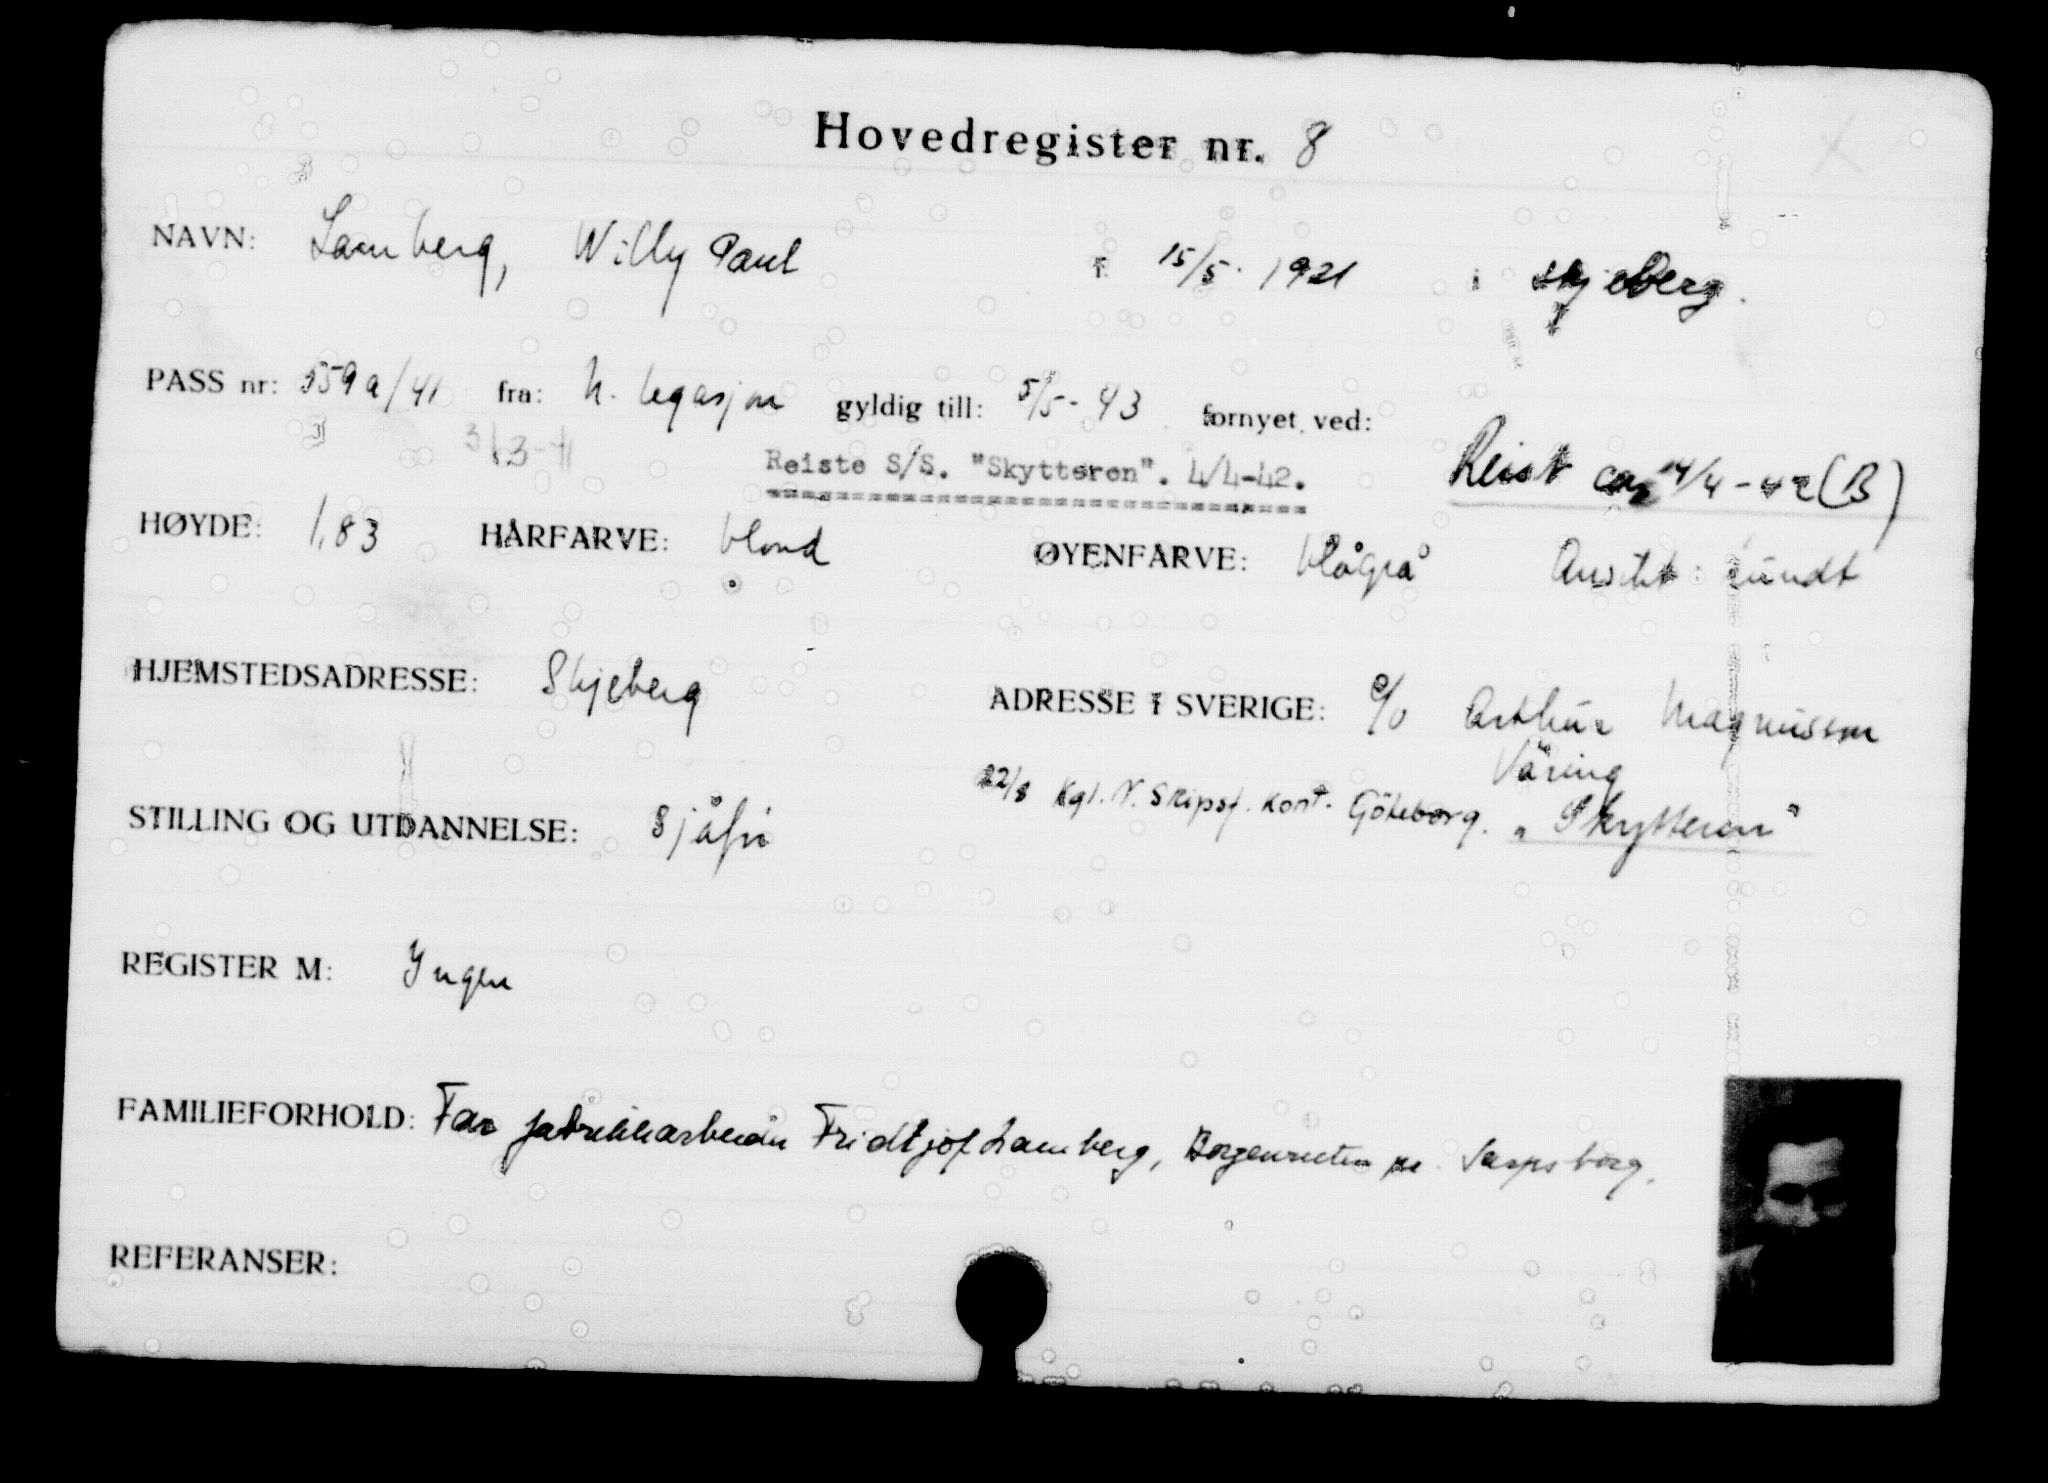 Hovedregister nr. 8
NAVN: Lamberg, Willy Paul f. 15/5. 1921 i Skjeberg.
PASS nr: 559a/41 fra: N. legasjon gyldig till: 5/5-43 fornyet ved:
3/3-41
Reiste S/S. "Skytteren". 4/4-42. Reist 14/4-42 (B)
HØYDE: 1,83 HÅRFARVE: blond ØYENFARVE: blågrå Ansikt: rundt
HJEMSTEDSADRESSE: Skjeberg ADRESSE I SVERIGE: c/o Arthur Magnusson
Väring
22/8 Kgl. N. Skipsf. kont. Göteborg. "Skytteren"
STILLING OG UTDANNELSE: Sjåfør
REGISTER M: Ingen
FAMILIEFORHOLD: Far fabrikkarbeider Fridtjof Lamberg, Borgenveien pr. Sarpsborg.
REFERANSER: